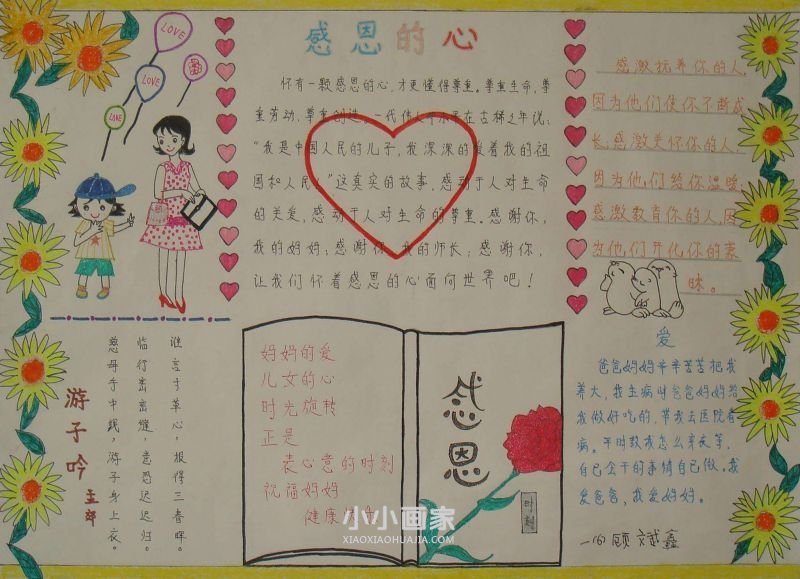 LOVE
LOVE
LOVE
感恩的心
怀有一颗感恩的心,才更懂得尊重。尊重生命,尊
重劳动,尊重创造。一代伟人邓小平在古稀之年说:
“我是中国人民的儿子,我深深的爱着我的祖
国和人民!”这真实的故事,感动于人对生命
的关爱,感动于人对生命的尊重。感谢你,
我的妈妈;感谢你,我的师长;感谢你,
让我们怀着感恩的心面向世界吧!
感激抚养你的人,
因为他们使你不断成
长;感激关怀你的人,
因为他们给你温暖,
感激教育你的人,因
为他们开化你的蒙
昧。
游子吟
孟郊
慈母手中线,游子身上衣。
临行密密缝,意恐迟迟归。
谁言寸草心,报得三春晖。
妈妈的爱
儿女的心
时光旋转
正是
表心意的时刻
祝福妈妈
健康
感恩
时刻
爱
爸爸妈妈辛辛苦苦把我
养大,我生病时爸爸妈妈给
我做好吃的,带我去医院看
病。平时教我怎么穿衣等,
自己会干的事情自己做,我
爱爸爸,我爱妈妈。
一(6) 顾斌鑫
小小画家
XIAOXIAOHUAJIA.COM